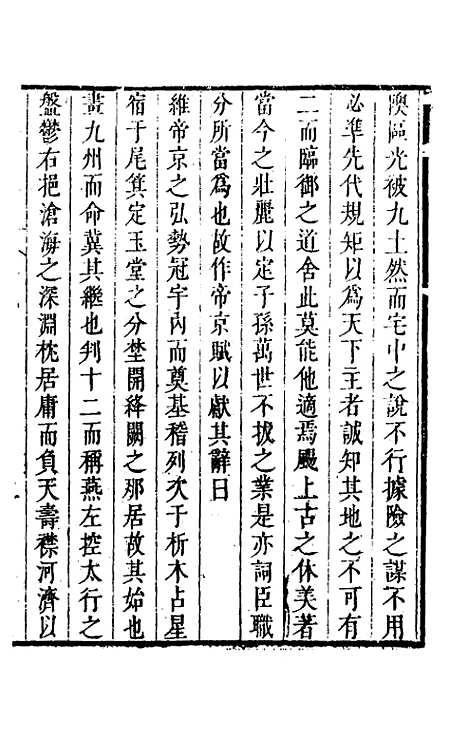 隩區光被九土然而宅中之說不行據險之謀不用
必準先代規矩以爲天下主者誠知其地之不可有
二而臨御之道舍此莫能他適焉颺上古之休美著
當今之壯麗以定子孫萬世不拔之業是亦詞臣職
分所當爲也故作帝京賦以獻其辭曰
維帝京之弘勢冠宇內而奠基稽列次于析木占星
宿于尾箕定玉堂之分埜開絳闕之那居故其始也
畫九州而命冀其繼也判十二而稱燕左控太行之
盤鬱右挹滄海之深淵枕居庸而負天壽襟河濟以